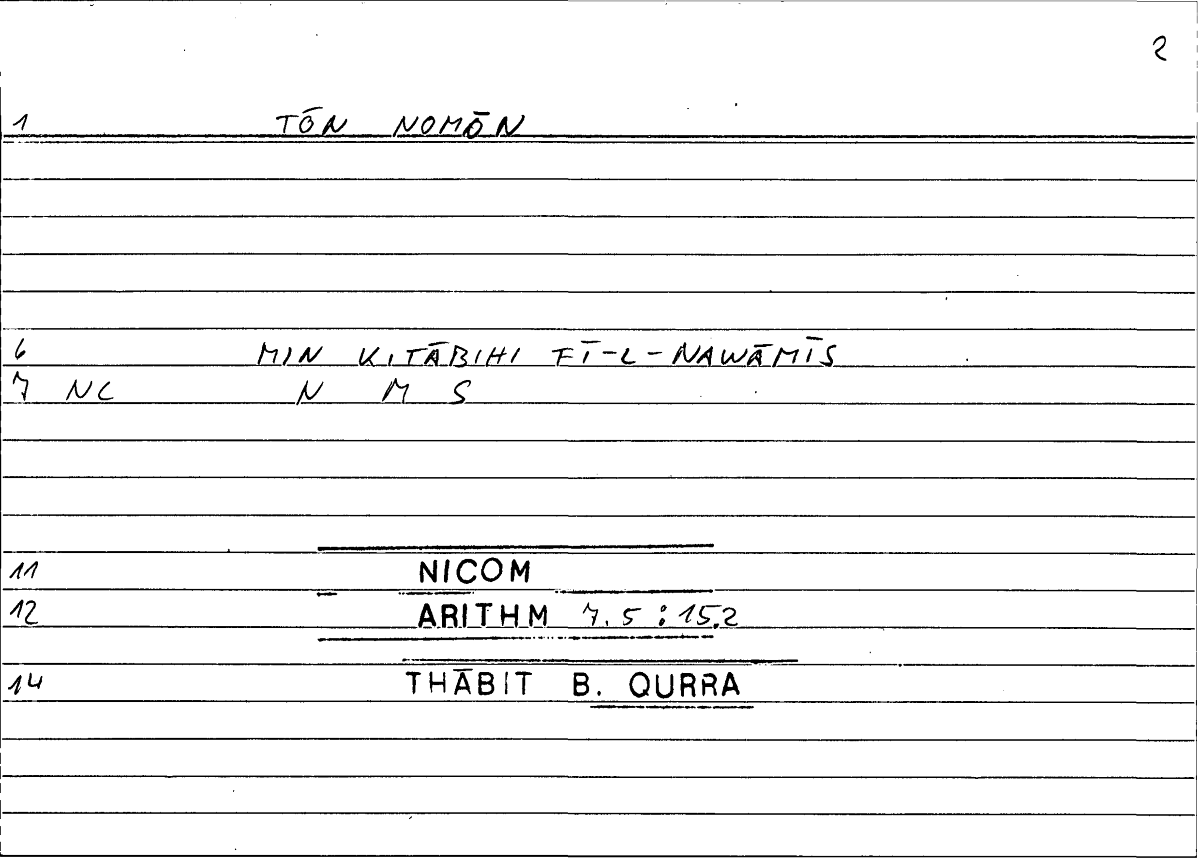 2
1 TŌN NOMŌN
6 MIN KITĀBIHI FĪ-L-NAWĀMĪS
7 NC N M S
11 NICOM
12 ARITHM 7.5:15.2
14 THĀBIT B. QURRA